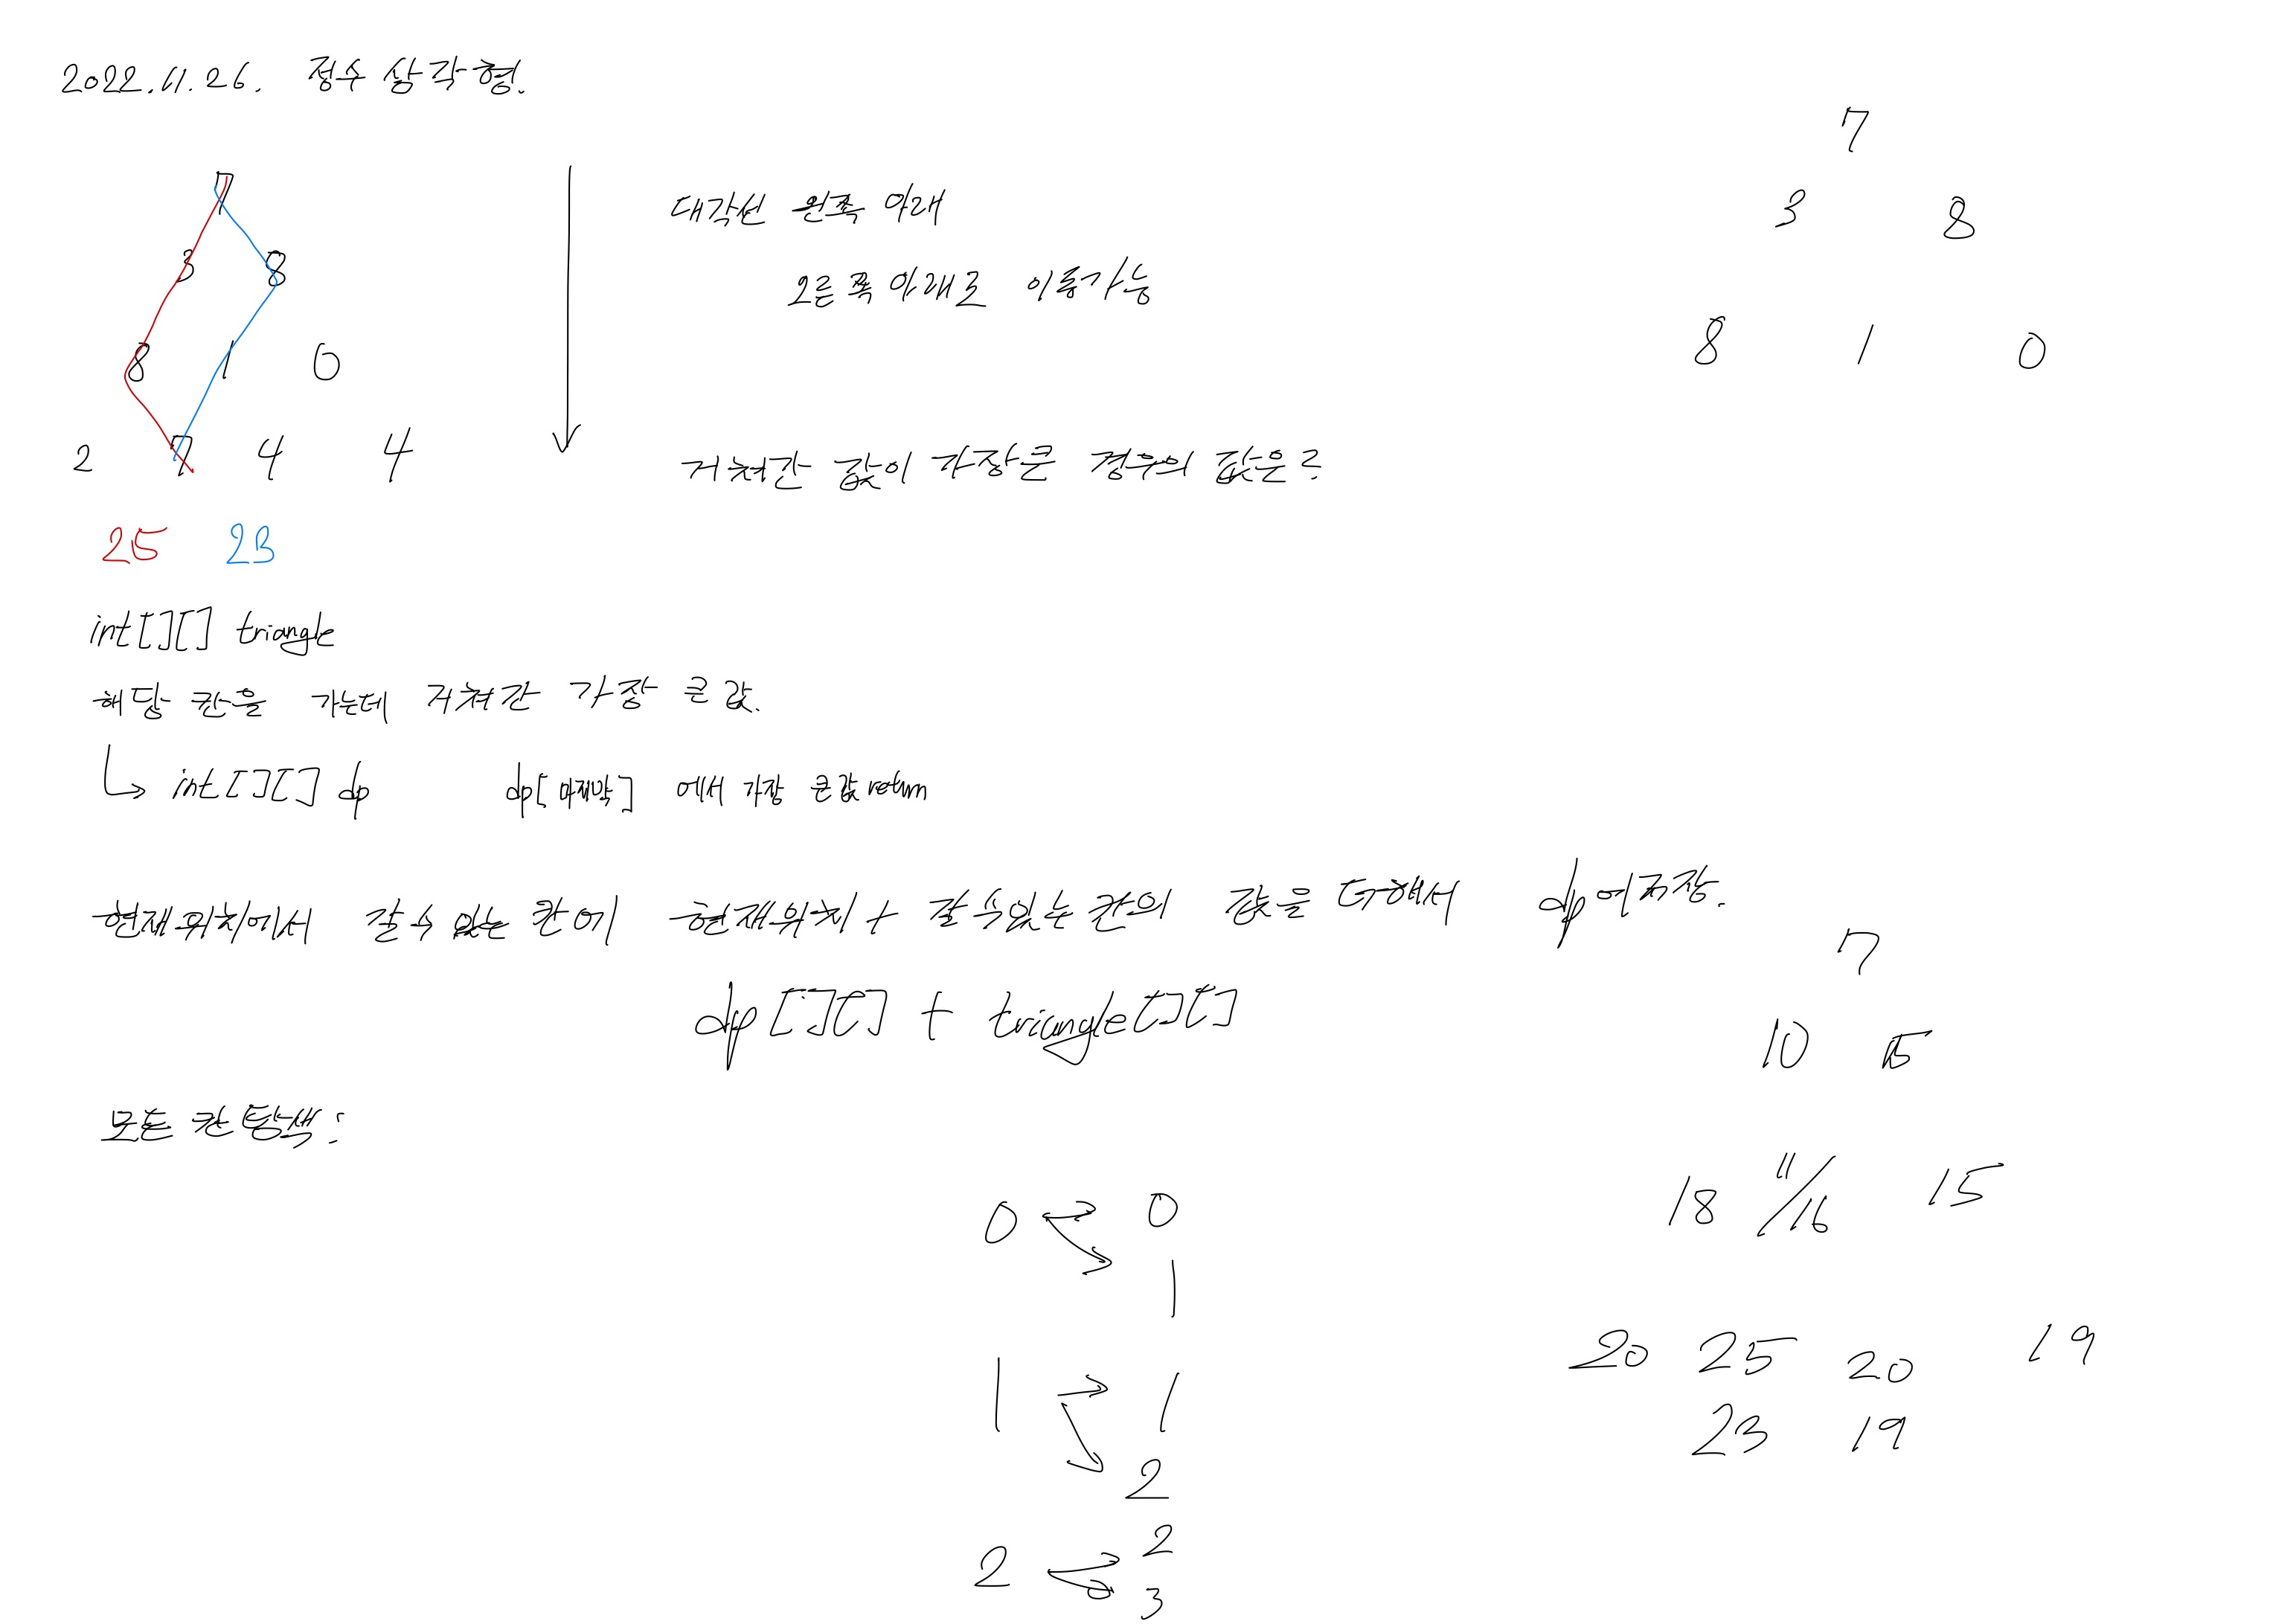 2022.11.26. 정수 삼각형.
7
3 8
8 1 0
2 7 4 4
25 23
대각선 왼쪽 아래
오른쪽 아래로 이동가능
거쳐간 값이 가장큰 경우의 값은?
7
3 8
8 1 0
int[][] triangle
해당 칸을 가는데 거쳐간 가장 큰 값.
int[][] dp dp[마지막] 에서 가장 큰 값 return
현재위치에서 갈수 있는 칸에 현재위치 + 갈 수 있는 칸의 값을 더해서 dp에 저장.
dp[][] + triangle[][]
모든 칸 탐색:
0 → 0
1
1 → 1
2
2 → 2
3
7
10 15
18 11/16 15
20 25 20 19
23 19